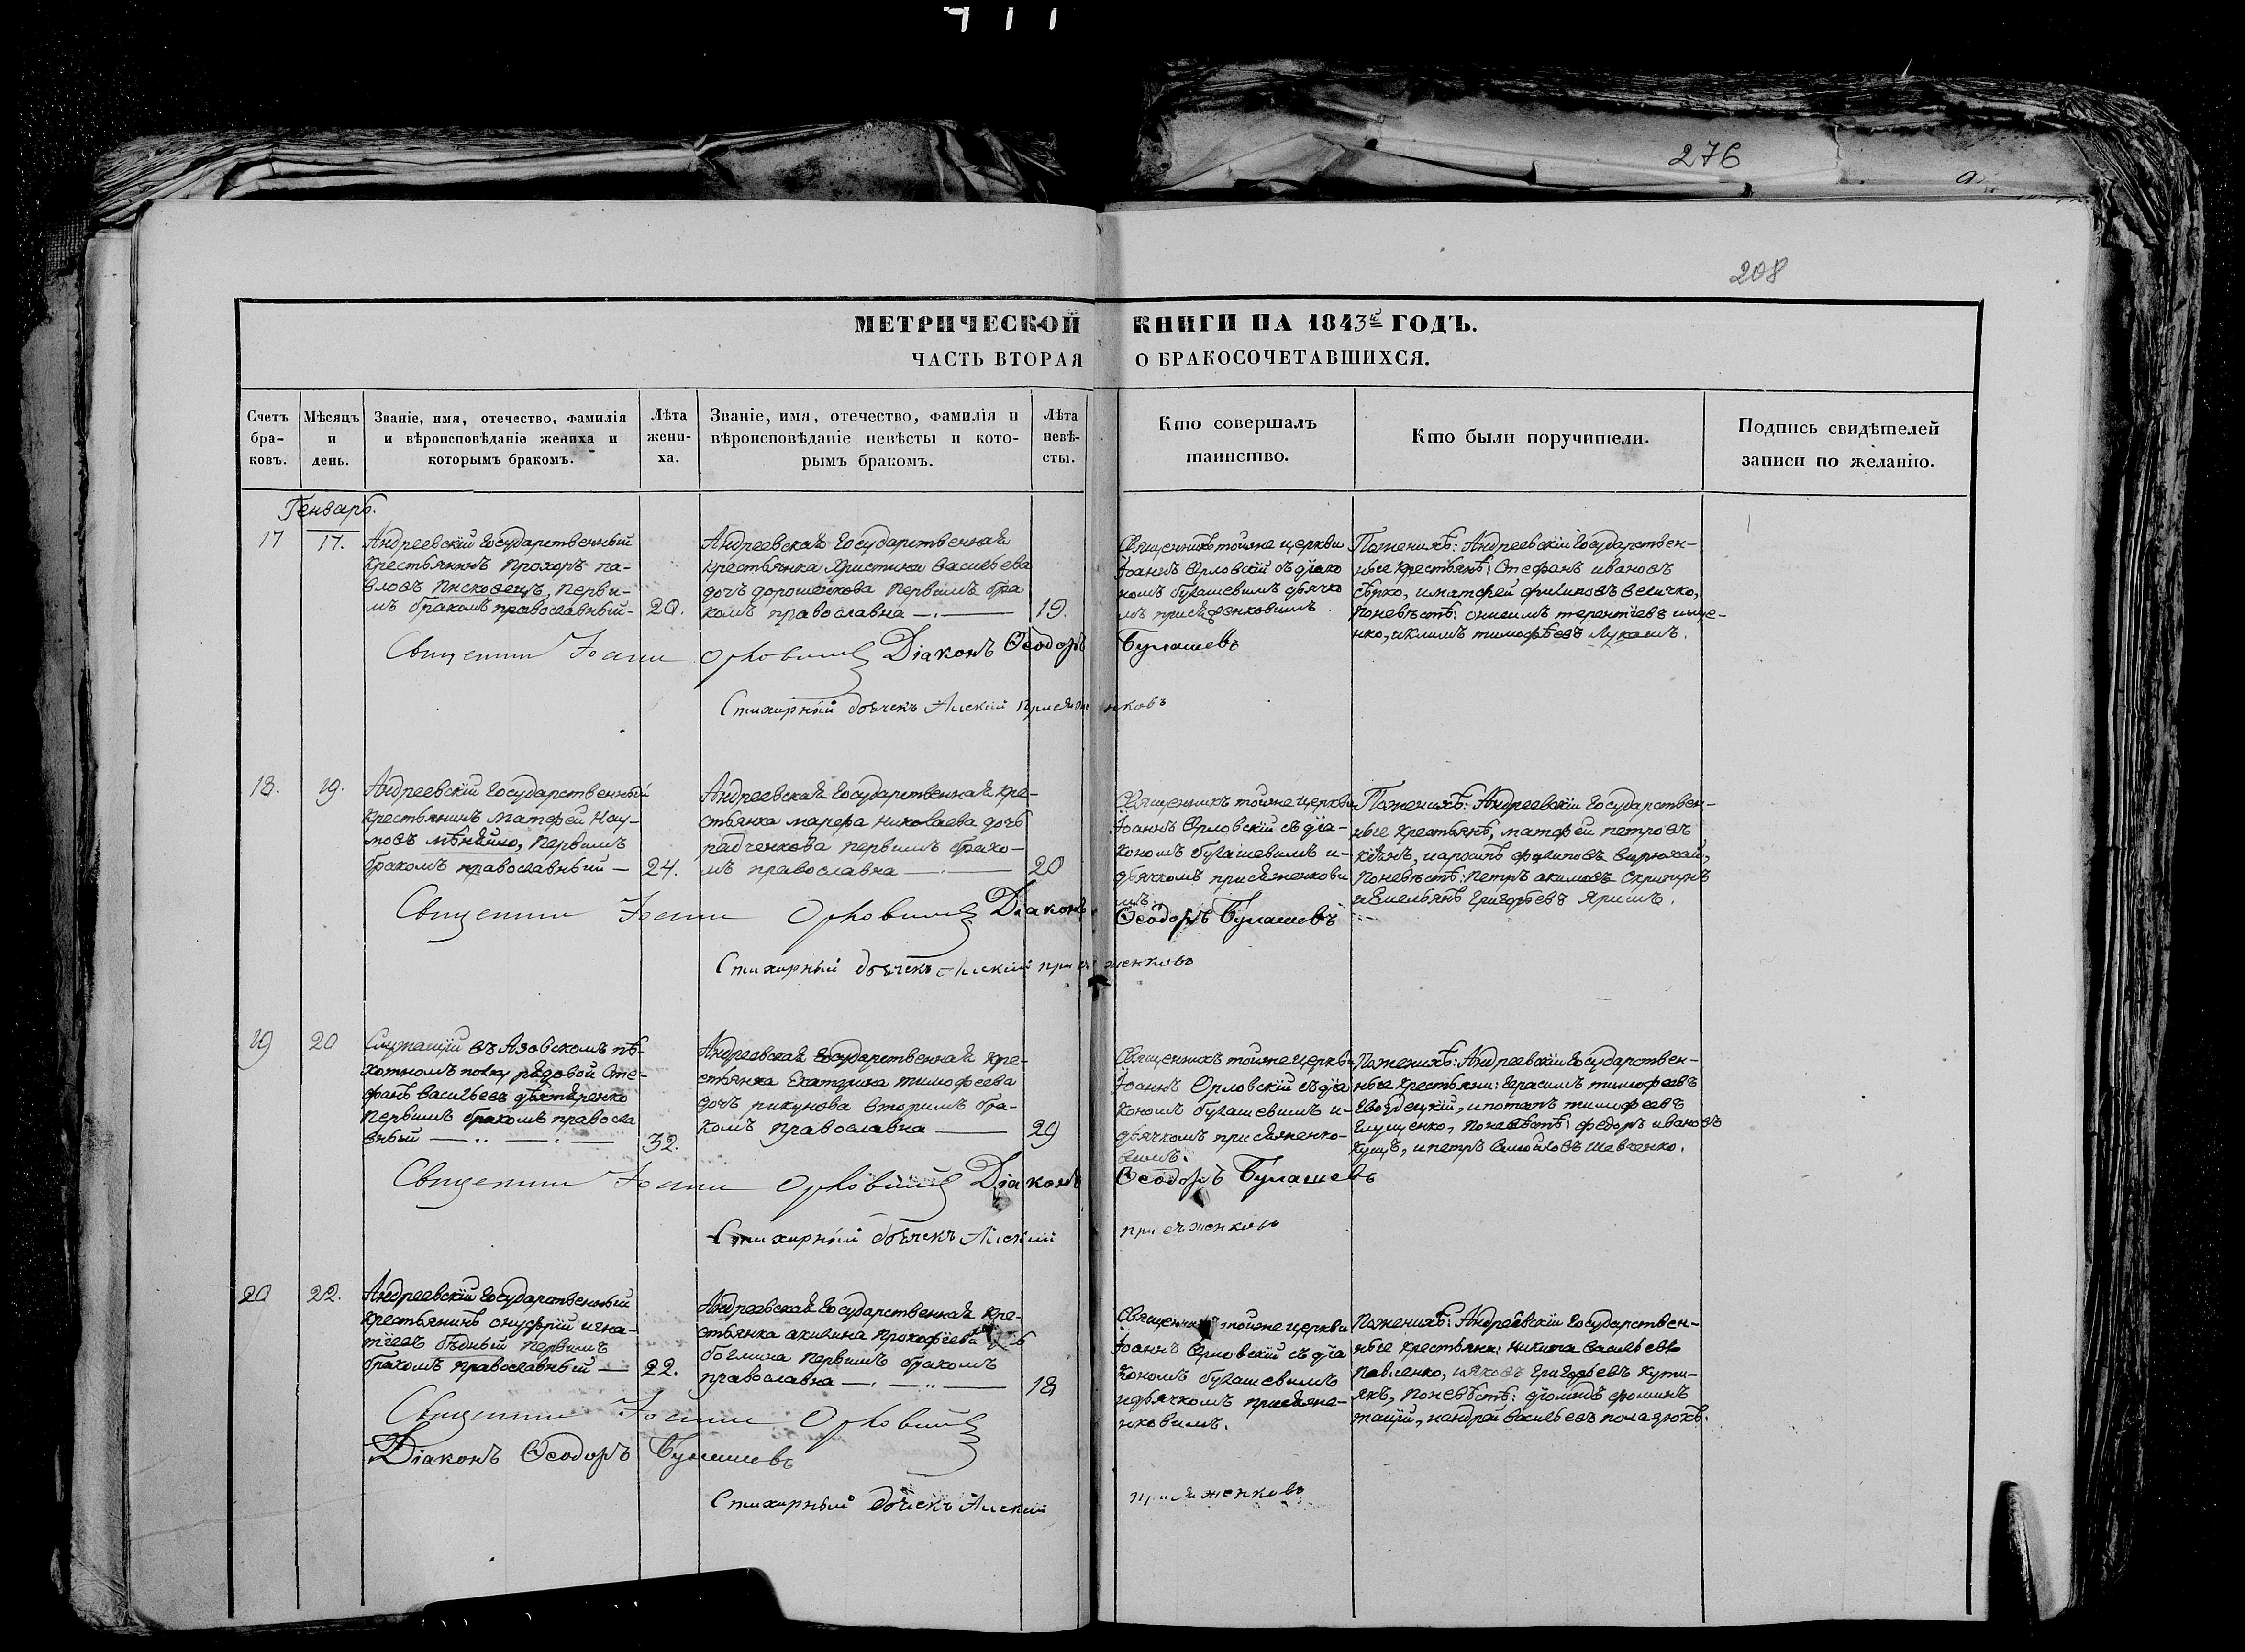 276
208
МЕТРИЧЕСКОЙ КНИГИ НА 1843й ГОДЪ.
ЧАСТЬ ВТОРАЯ О БРАКОСОЧЕТАВШИХСЯ.
Счетъ бра- ковъ.
Мѣсяцъ и день.
Званіе, имя, отечество, фамилія
и вѣроисповѣданіе жениха и
которымъ бракомъ.
Лѣта жени- ха.
Званіе, имя, отечество, фамилія и
вѣроисповѣданіе невѣсты и кото-
рымъ бракомъ.
Лѣта невѣ- сты.
Кто совершалъ
таинство.
Кто были поручители.
Подпись свидѣтелей
записи по желанію.
Генварь.
17
17.
Андреевскій государственный
крестьянинъ Прохоръ па-
вловъ Писковецъ, перви-
мъ бракомъ православный-
20.
Андреевская государственная
крестьянка Христина васильева
дочъ дорошенкова первимъ бра
комъ православна
19.
Священникъ тояже церкви
Іоаннъ Орловскій съ діако
номъ булашевимъ дьячко
мъ присяженковимъ
Поженихѣ: Андреевскіи государствен-
ные крестьянѣ: Стефанъ ивановъ
сѣрко, иматфей филиповъ величко,
поневѣстѣ: онисимъ терентіевъ
нко, иклимъ тимофѣевъ Лукашъ.
Священникъ Іоаннъ Орловский Діаконъ Ѳеодоръ Булашевъ
Стихирный дьячекъ Алексій Присяженковъ
18.
19.
Андреевскій государственный
крестьянинъ Матфей Нау-
мовъ первимъ
бракомъ православный —
24.
Андреевская государственная кре-
стьянка марфа николаева дочь
радченкова первимъ брако-
мъ православна
20
Священникъ тояже церкви
Іоаннъ Орловскій съ діа-
кономъ булашевимъ и-
дьячкомъ присяженкови
мъ.
Поженихѣ: Андреевскіи государствен-
ные крестьянѣ, матфей петровъ
иархипъ филиповъ
поневѣстѣ: петръ акимовъ Скрипунъ
иЕмельянъ григорьевъ Яришъ.
Священникъ Іоаннъ Орловский Діаконъ Ѳеодоръ Булашевъ
Стихирный дьячекъ Алексій присяженковъ
19
20
Служащій въ Азовскомъ пѣ-
хотномъ полку рядовой Сте-
фанъ васильевъ
первимъ бракомъ правосла
вный
32.
Андреевская государственная кре-
стьянка Екатерина тимофеева
дочъ рикунова вторимъ бра-
комъ православна
29
Священникъ тояже церкви
Іоаннъ Орловскій съ діа
кономъ булашевимъ и-
дьячкомъ присяженко-
вимъ.
Поженихѣ: Андреевскіи государствен-
ные крестьяни: герасимъ тимофеевъ
ипотапъ тимофеевъ
глущенко, поневѣстѣ: федоръ ивановъ
Куцъ, ипетръ самойловъ шевченко.
Священникъ Іоаннъ Орловский Діаконъ Ѳеодоръ Булашевъ
Стихирный дьячекъ Алексій присяженковъ
20
22.
Андреевскій государственный
крестьянинъ онуфрій игна-
тіевъ бѣдный первимъ
бракомъ православный —
22.
Андреевская государственная кре-
стьянка акилина прокофіева
первимъ бракомъ
православна
18
Священникъ тояже церкви
Іоаннъ Орловскій съ діа
кономъ булашевимъ
идьячкомъ присяже-
нковимъ.
Поженихѣ: Андреевскіи государствен-
ные крестьяни: никита васильевъ
павленко, ияковъ григорьевъ кути-
якъ, поневѣстѣ: фоминъ
иандрей васильевъ
Священникъ Іоаннъ Орловский
Діаконъ Ѳеодоръ Булашевъ
Стихирный дьячекъ Алексій присяженковъ